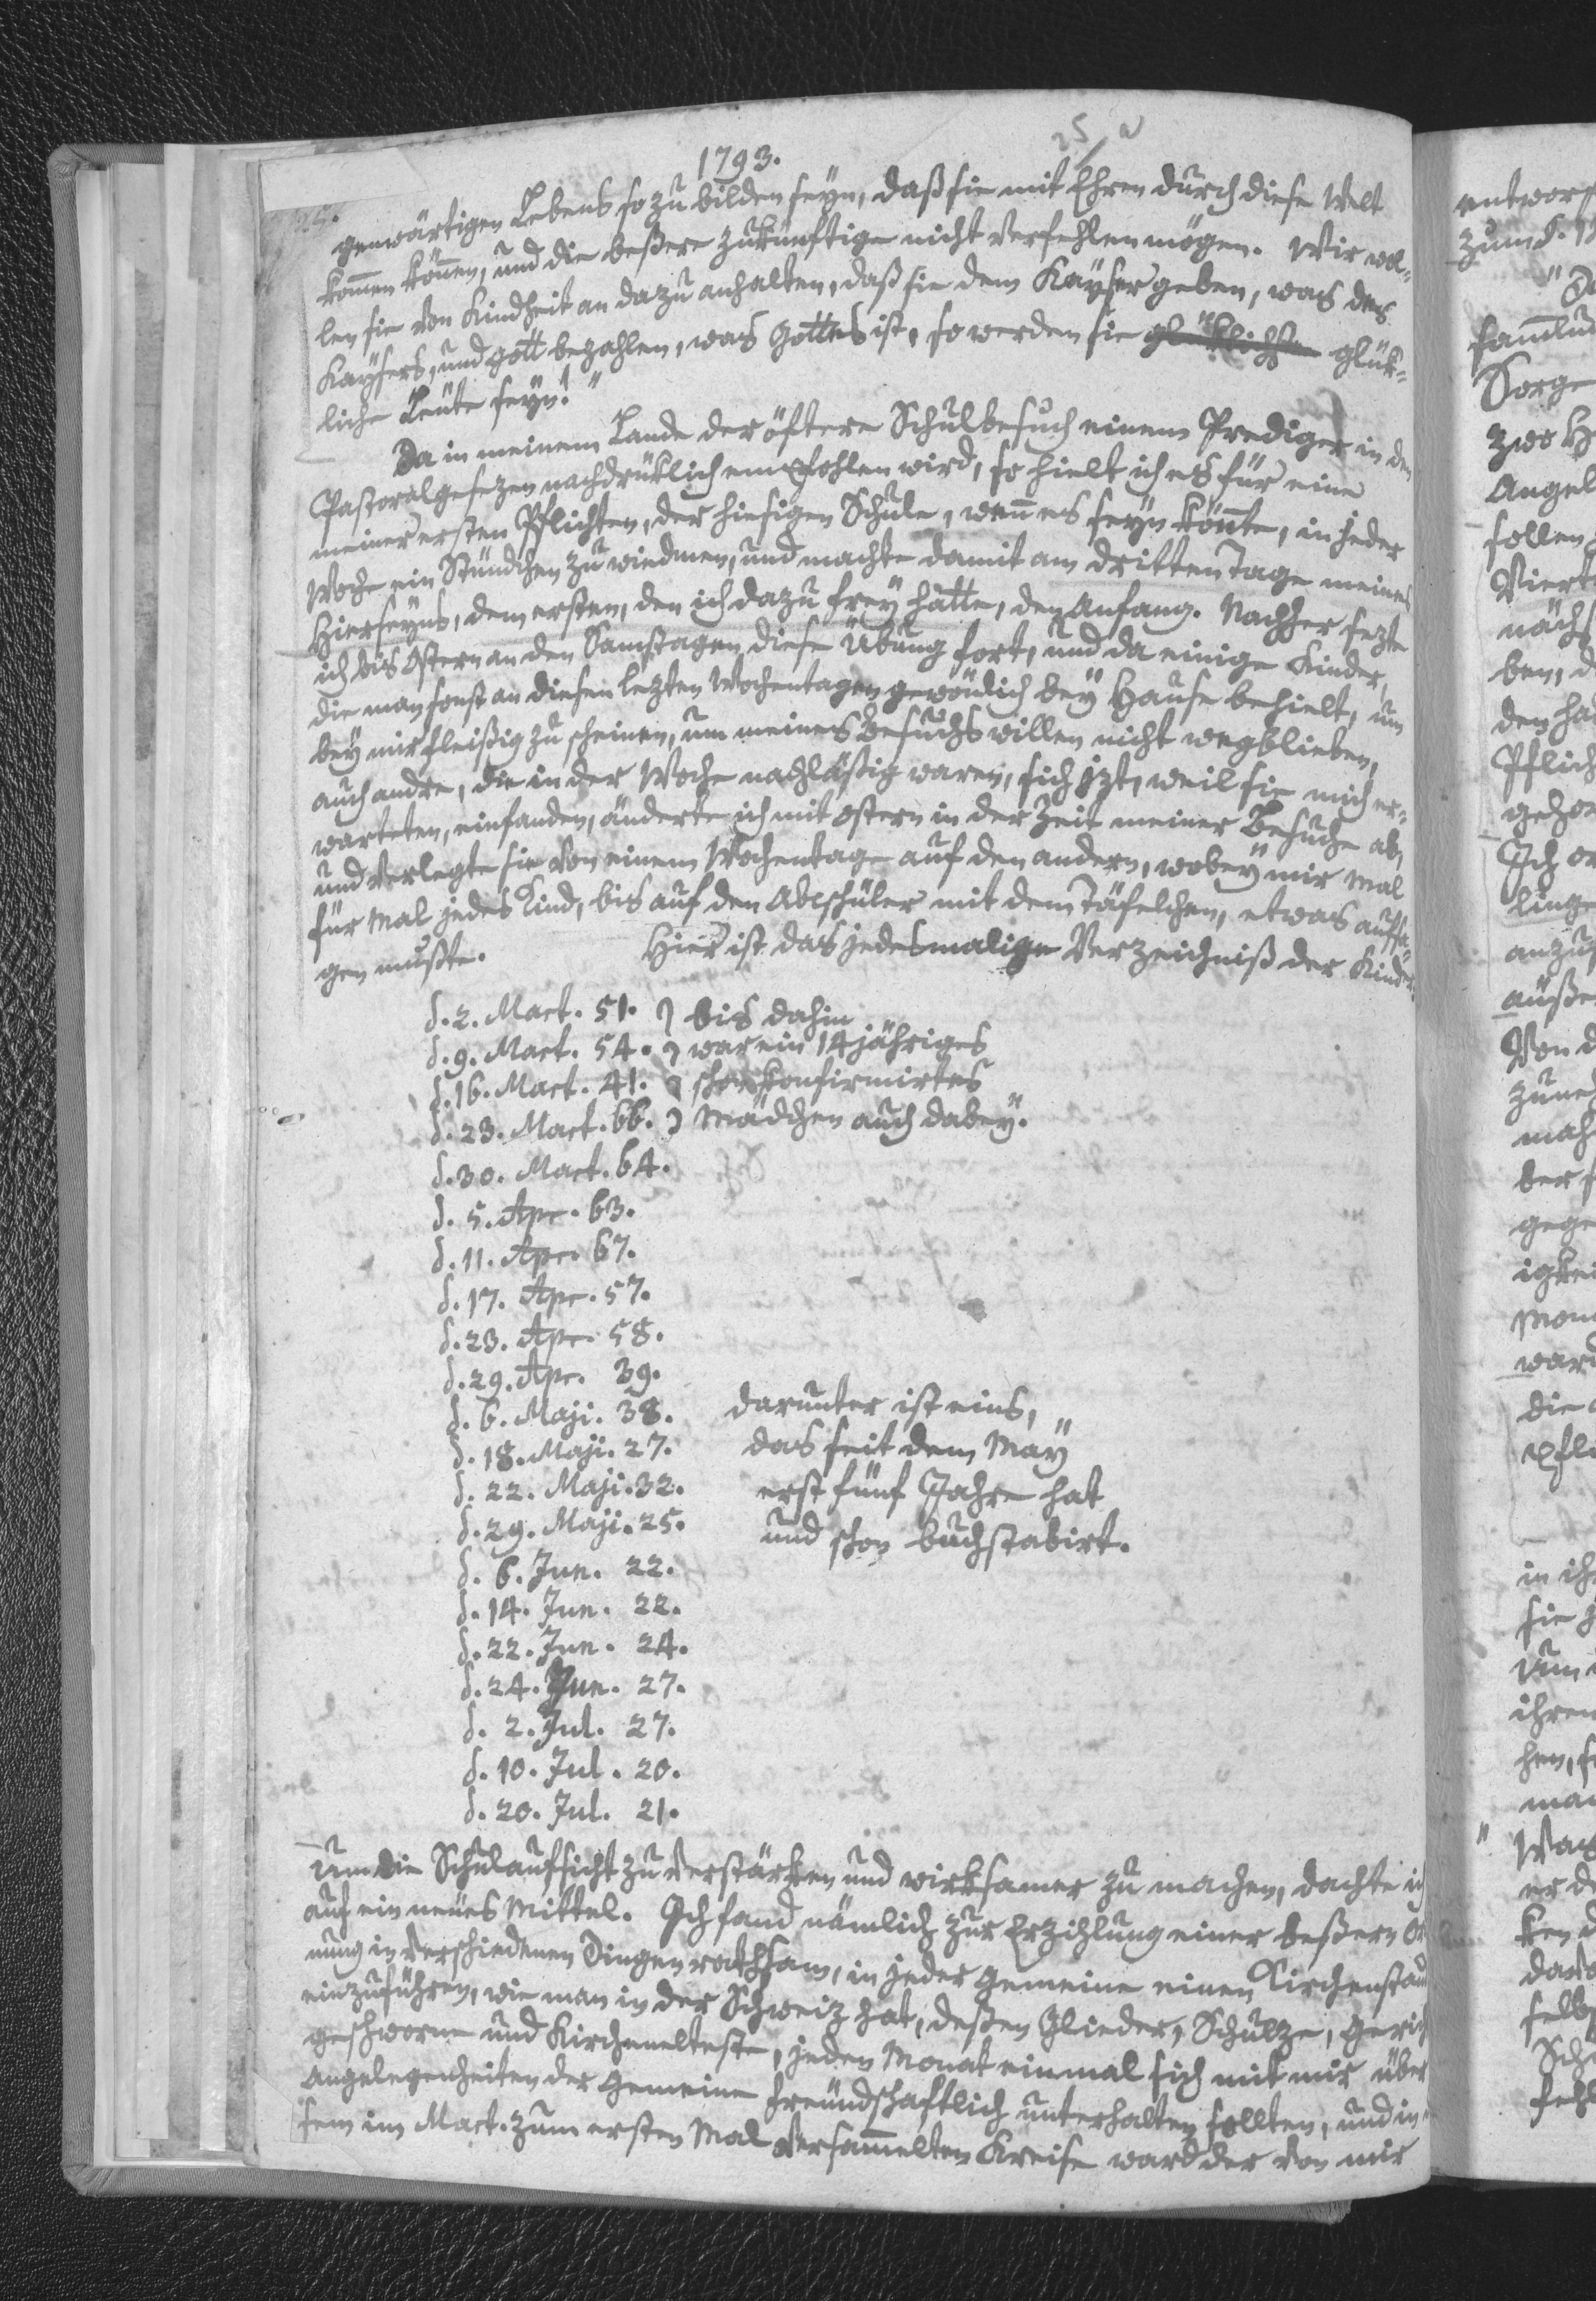 25 a
1793.
genwärtigen Lebens so zu bilden seyn, daß sie mit Ehren durch diese Welt
kom̄en kön̄en, und die beßere zukünftige nicht verfehlen mögen. Wir wol-
len sie von Kindheit an dazu anhalten, daß sie dem Kayser geben, was des
Kaysers, und gott bezahlen, was Gottes ist, so werden sie glüklichste glük-
liche Leute seyn!"
Da in meinem Lande der öftere Schulbesuch einem Prediger in den
Pastoralgesezen nachdrüklich empfohlen wird, so hielt ich es für eine
meiner ersten Pflichten, der hiesigen Schule, wan̄ es seyn kön̄te, in jeder
Woche ein Stündchen zu wiedmen, und machte damit am dritten Tage meines
Hierseyns, dem ersten, den ich dazu frey hatte, den Anfang. Nachher sezte
ich bis Ostern an den Samstagen diese Übung fort, und da einige Kinder,
die man sonst an diesen lezten Wochentagen gewönlich bey Hause behielt, um
bey mir fleißig zu scheinen, um meines Besuchs willen nicht wegblieben,
auch andre, die in der Woche nachläßig waren, sich jzt, weil sie mich er-
warteten, einfanden, änderte ich mit Ostern in der Zeit meiner Besuche ab,
und verlegte sie von einem Wochentage auf den andern, wobey mir Mal
für Mal jedes Kind, bis auf den Abcschüler mit dem Täfelchen, etwas aufsa-
gen mußte. Hier ist das jedesmalige Verzeichniß der Kinder.
d. 2. Mart. 51. } bis dahin
d. 9. Mart. 54. } war ein 14 jähriges
d. 16. Mart. 41. } schon konfirmirtes
d. 23. Mart. 66. } Mädchen auch dabey.
d. 30. Mart. 64.
d. 5. Apr. 63.
d. 11. Apr. 67.
d. 17. Apr. 57.
d. 23. Apr. 58.
d. 29. Apr. 39.
d. 6. Maji. 38. darunter ist eins,
d. 18. Maji. 27. das seit dem May
d. 22. Maji. 32. erst fünf Jahre hat
d. 29. Maji. 25. und schon buchstabirt.
d. 6. Jun. 22.
d. 14. Jun. 22.
d. 22. Jun. 24.
d. 24. Jun. 27.
d. 2. Jul. 27.
d. 10. Jul. 20.
d. 20. Jul. 21.
Um die Schulaufsicht zu verstärken und wirksamer zu machen, dachte ich
auf ein neues Mittel. Ich fand nämlich zur Erzihlung einer beßern Or
nung in verschiedenen Dingen rathsam, in jeder Gemeine einen Kirchenstan
einzuführen, wie man in der Schweiz hat, deßen Glieder, Schulze, Gerich
geschworne und Kirchenelteste, jeden Monat einmal sich mit mir über
Angelegenheiten der Gemeine freundschaftlich unterhalten sollten, und in
sem im Mart. zum ersten Mal versam̄elten Kreise ward der von mir